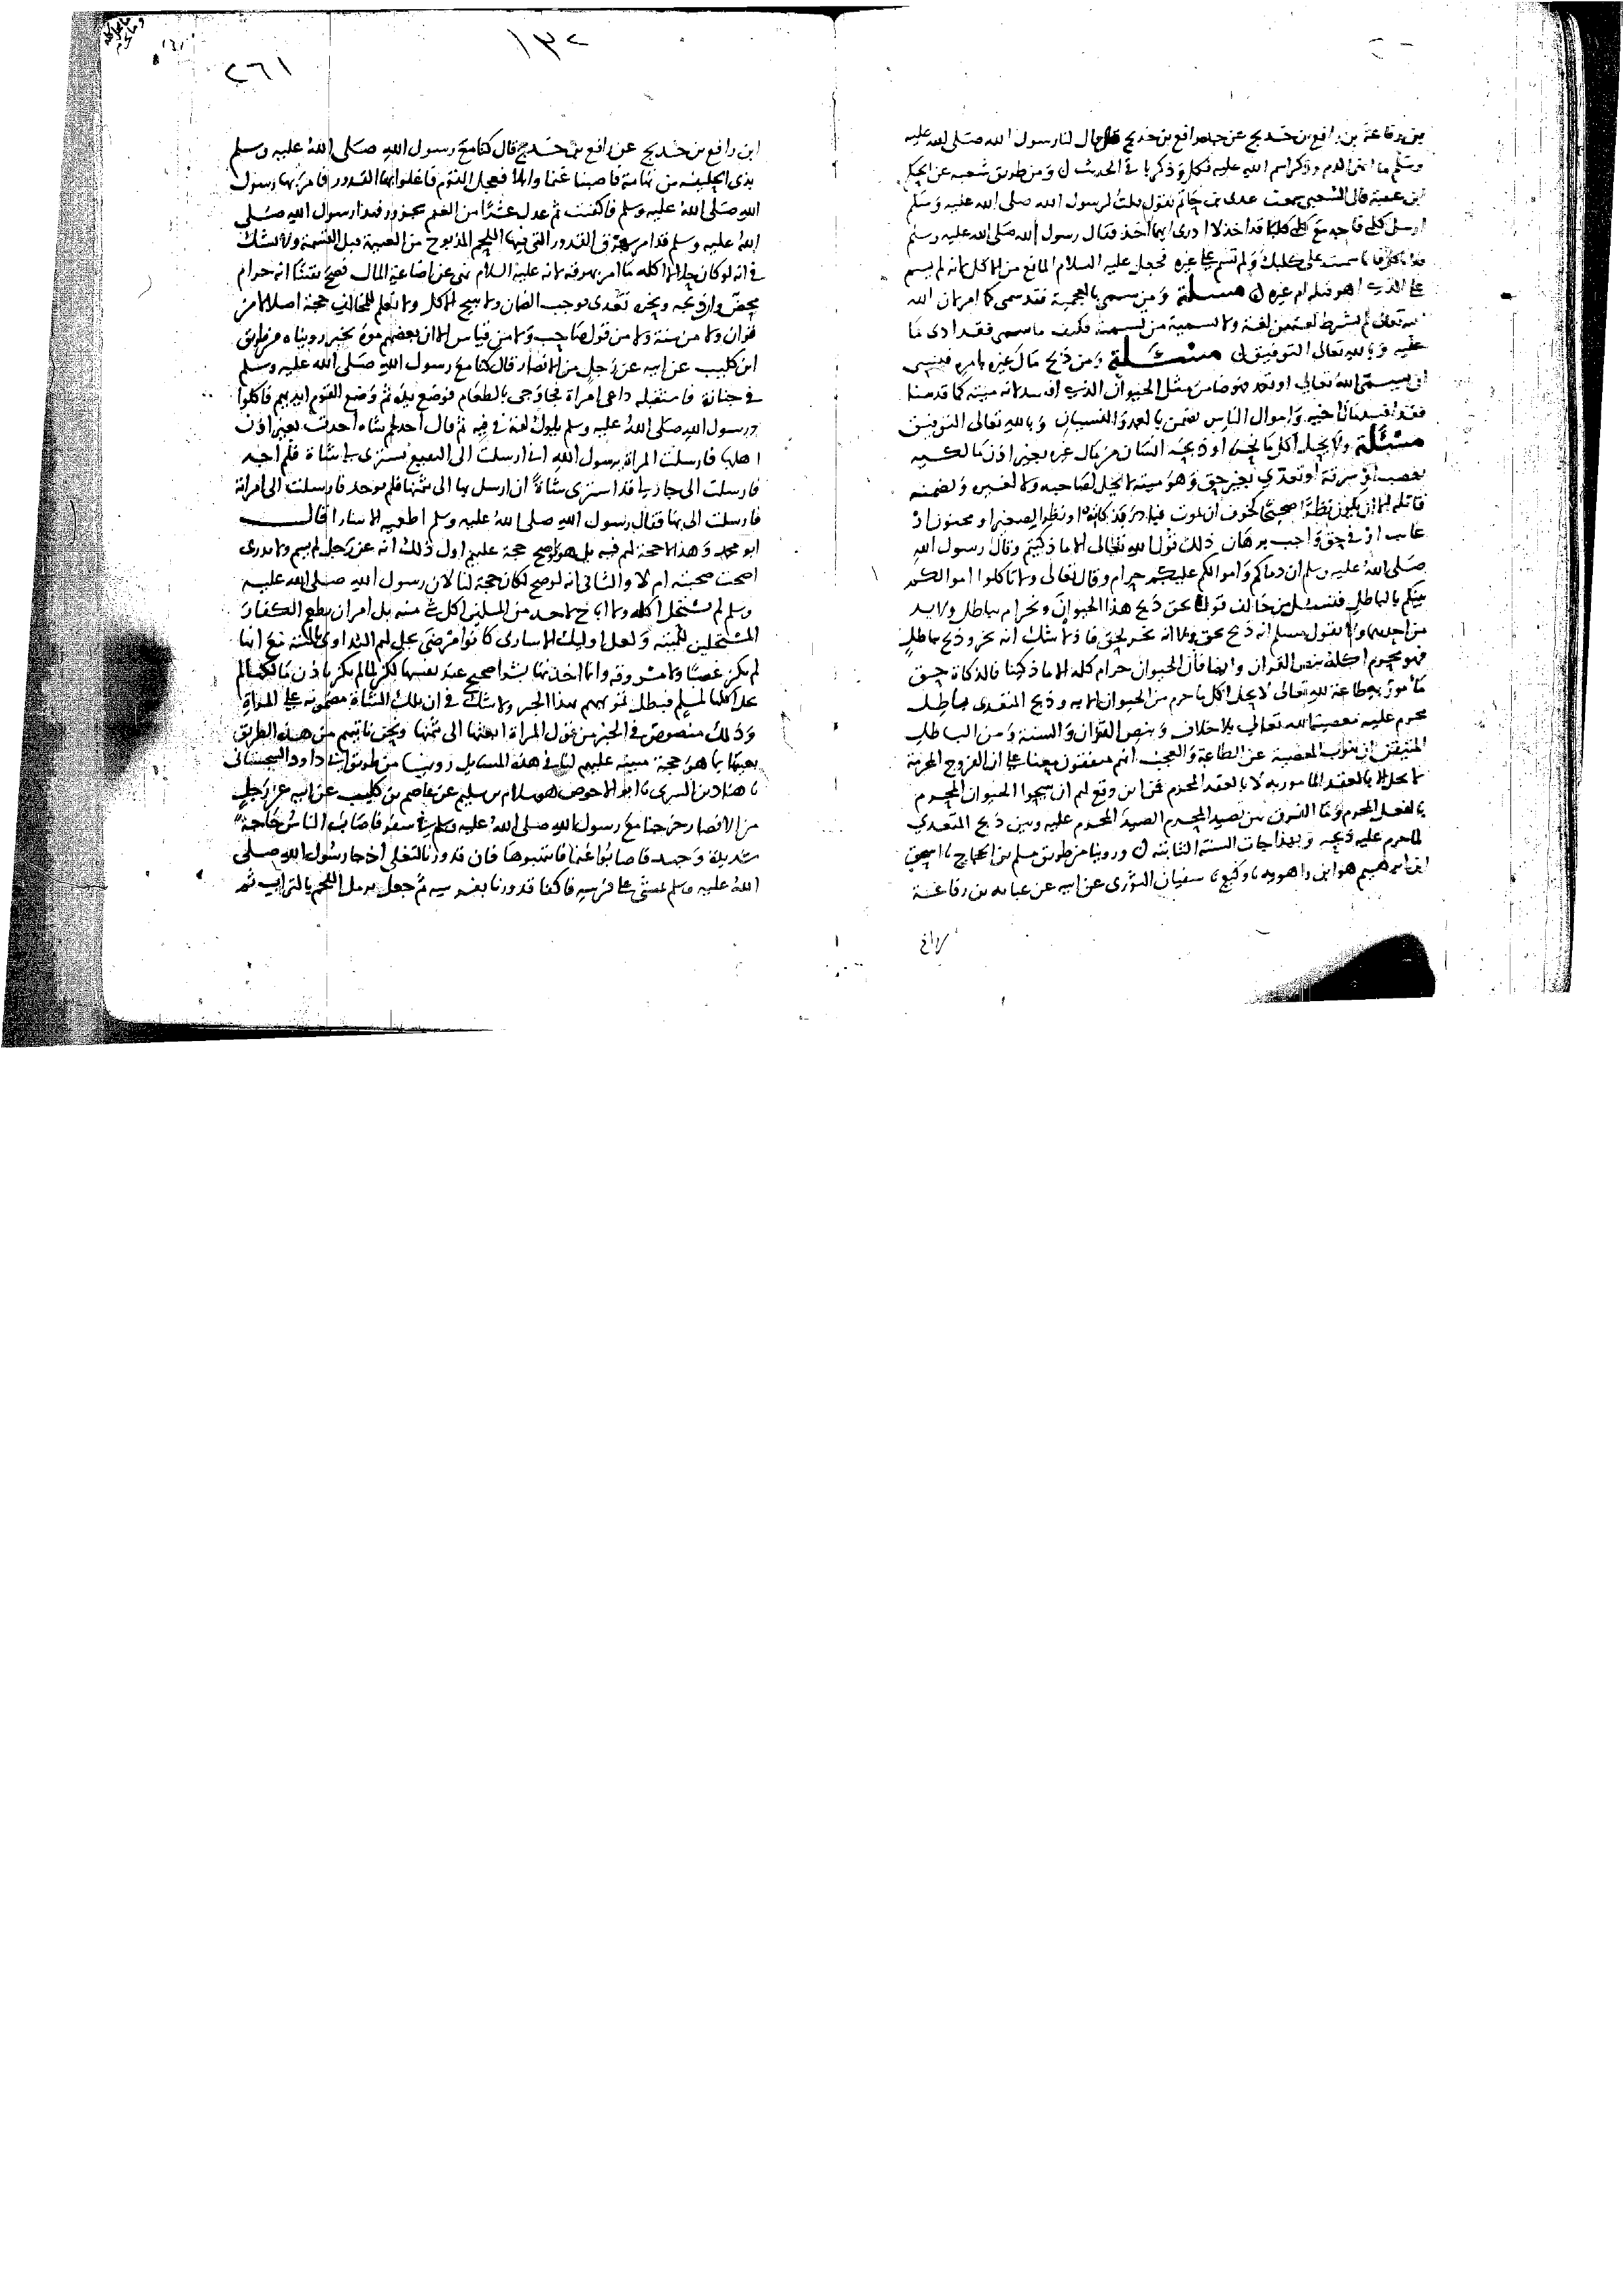 ١٣٢
٢٦١
بن رفاعة بن رافع بن خديج عن جده رافع بن خديج قال قال لنا رسول الله صلى الله عليه
وسلم ما انهر الدم وذكر اسم الله عليه فكلوه وذكر باقي الحديث ومن طريق شعبه عن الحكم
ابن عتيبة قال الشعبي سمعت عدي بن حاتم يقول قلت لرسول الله صلى الله عليه وسلم
ارسل كلبي فاجد مع كلبي كلبا قد اخذ لا ادري ايهما اخذ فقال رسول الله صلى الله عليه وسلم
فلا تاكل فانما سميت على كلبك ولم تسم على غيره فجعل عليه السلام المانع من الاكل انه لم يسم
على الذي اهو قتله ام غيره مسئلة ومن سمى بالعجمية فقد سمى كما امر لان الله
تعالى لم يشترط لغة من لغة ولا تسمية من تسمية فكيف ما سمى فقد ادى ما
عليه وبالله تعالى التوفيق مسئلة ومن ذبح مال غيره بامره فنسي
ان يسمي الله تعالى او تعمد فهو ضامن مثل الحيوان الذي افسد لانه ميتة كما قدمنا
فقد افسد مال اخيه واموال الناس تضمن بالعمد والنسيان وبالله تعالى التوفيق
مسئلة ولا يحل اكل ما نحره او ذبحه انسان من مال غيره بغير اذن مالكه
بغصب او سرقة او تعدي بغير حق وهو ميتة لا يحل لصاحبه ولا لغيره ويضمنه
قاتله الا ان يكون نظرا صحيحا كخوف ان يموت فيبادر بذكاته او نظرا لصغير او مجنون او
غايب او في حق واجب برهان ذلك قول الله تعالى الا ما ذكيتم وقال رسول الله
صلى الله عليه وسلم ان دماكم واموالكم عليكم حرام وقال تعالى ولا تاكلوا اموالكم
بينكم بالباطل فنسئل من خالف قولنا بحق ذبح هذا الحيوان ونحر ام بباطل ولا بد
من احدهما ولا يقول مسلم انه ذبح بحق ولا انه نحر بحق فاذ لا شك انه نحر وذبح بباطل
فهو محرم اكله بنص القران وايضا فان الحيوان حرام كله الا ما ذكينا فالذكاة حق
مامور به طاعة لله تعالى لا يحل اكل ما حرم من الحيوان الا به وذبح المتعدي باطل
محرم عليه معصية لله تعالى بلا خلاف وبنص القران والسنة ومن الباطل
المتيقن ان تنوب المعصية عن الطاعة والعجب انهم متفقون معنا على ان الفروج المحرمة
لا تحل الا بالعقد المامور به لا بالعقد المحرم فمن اين وقع لهم ان يبيحوا الحيوان المحرم
بالفعل المحرم وما الفرق بين تصيد المحرم الصيد المحرم عليه وبين ذبح المتعدي
لما حرم عليه ذبحه وبهذا جات السنة الثابتة وروينا من طريق مسلم بن الحجاج نا اسحق
ابن ابرهيم هو ابن راهويه نا وكيع نا سفيان الثوري عن ابيه عن عباية بن رفاعة
ابن رافع بن خديج عن رافع بن خديج قال كنا مع رسول الله صلى الله عليه وسلم
بذي الحليفة من تهامة فاصبنا غنما وابلا فعجل القوم فاغلوا بها القدور فامر بها رسول
الله صلى الله عليه وسلم فاكفئت ثم عدل عشرا من الغنم بجزور فهذا رسول الله صلى
الله عليه وسلم قد امر بهرق القدور التي فيها اللحم المذبوح من الغنيمة قبل القسمة ولا شك
في انه لو كان حلالا اكله ما امر بهرقه لانه عليه السلام نهى عن اضاعة المال فصح يقينا انه حرام
محض وان ذبحه ونحره تعدي يوجب الضمان ولا يبيح الاكل ولا نعلم للمخالف حجة اصلا لا من
قران ولا من سنة ولا من قول صاحب ولا من قياس الا ان بعضهم موه بخبر رويناه من طريق
ابن كليب عن ابيه عن رجل من الانصار قال كنا مع رسول الله صلى الله عليه وسلم
في جنازة فاستقبله داعي امراة فجا وجي بالطعام فوضع يده ثم وضع القوم ايديهم فاكلوا
ورسول الله صلى الله عليه وسلم يلوك لقمة في فيه ثم قال اجد لحم شاة اخذت بغير اذن
اهلها فارسلت المراة يرسول الله اني ارسلت الى البقيع تشتري لي شاة فلم اجد
فارسلت الى جار لي قد اشترى شاة ان ارسل بها الي بثمنها فلم يوجد فارسلت الى امراته
فارسلت الي بها فقال رسول الله صلى الله عليه وسلم اطعميه الاسارا قال
ابو محمد وهذا لا حجة لهم فيه بل هو اوضح حجة عليهم اول ذلك انه عن رجل لم يسم ولا يدرى
اصحت صحبته ام لا والثاني انه لو صح لكان حجة لنا لان رسول الله صلى الله عليه
وسلم لم يستحل اكله ولا اباح لاحد من المسلمين اكل شي منه بل امر ان يطعم الكفار
المستحلين للميتة ولعل اوليك الاسارى كانوا مرضى يحل لهم التداوي بالميتة مع انها
لم تكن غصبا ولا مسروقة وانما اخذتها بشرا صحيح عند نفسها لكن لما لم يكن باذن مالكها لم
يحل اكلها لمسلم فبطل تمويههم بهذا الخبر ولا شك في ان تلك الشاة مضمونة على المراة
وذلك منصوص في الخبر من قول المراة ابعثها الي بثمنها ونحن ناتيهم من هذه الطريق
بعينها بما هو حجة مبينة عليهم لنا في هذه المسايل روينا من طريق ابي داود السجستاني
نا هناد بن السري نا ابو الاحوص هو سلام بن سليم عن عاصم بن كليب عن ابيه عن رجل
من الانصار خرجنا مع رسول الله صلى الله عليه وسلم في سفر فاصاب الناس حاجة
شديدة وجهد فاصابوا غنما فانتهبوها فان قدورنا لتغلي اذ جا رسول الله صلى
الله عليه وسلم يمشي على قوسه فاكفا قدورنا بقوسه ثم جعل يرمل اللحم بالتراب ثم